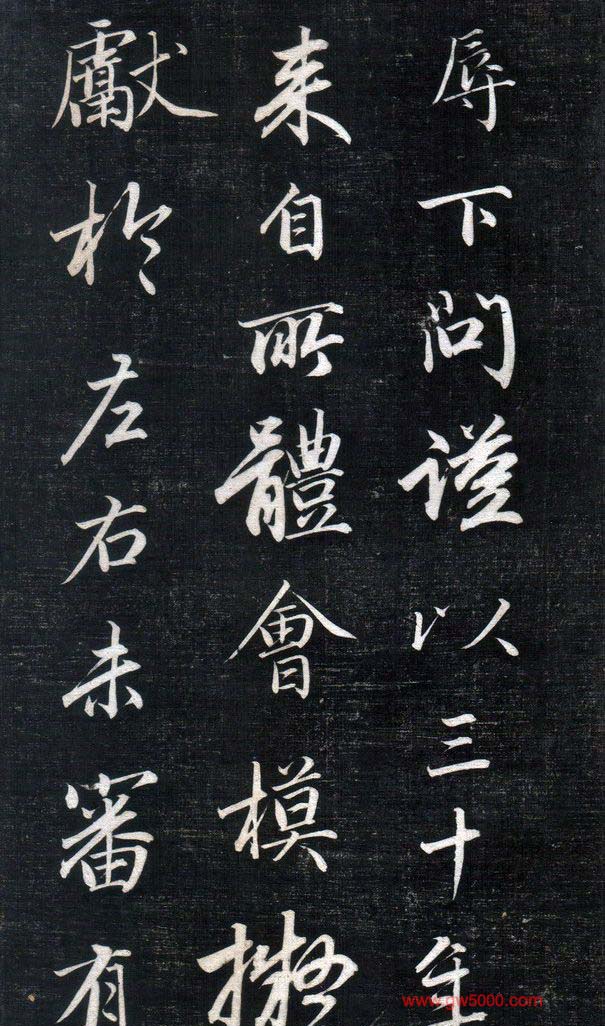 辱下問謹以三十年
来自所體會模擬
獻於左右未審有
www.gw5000.com